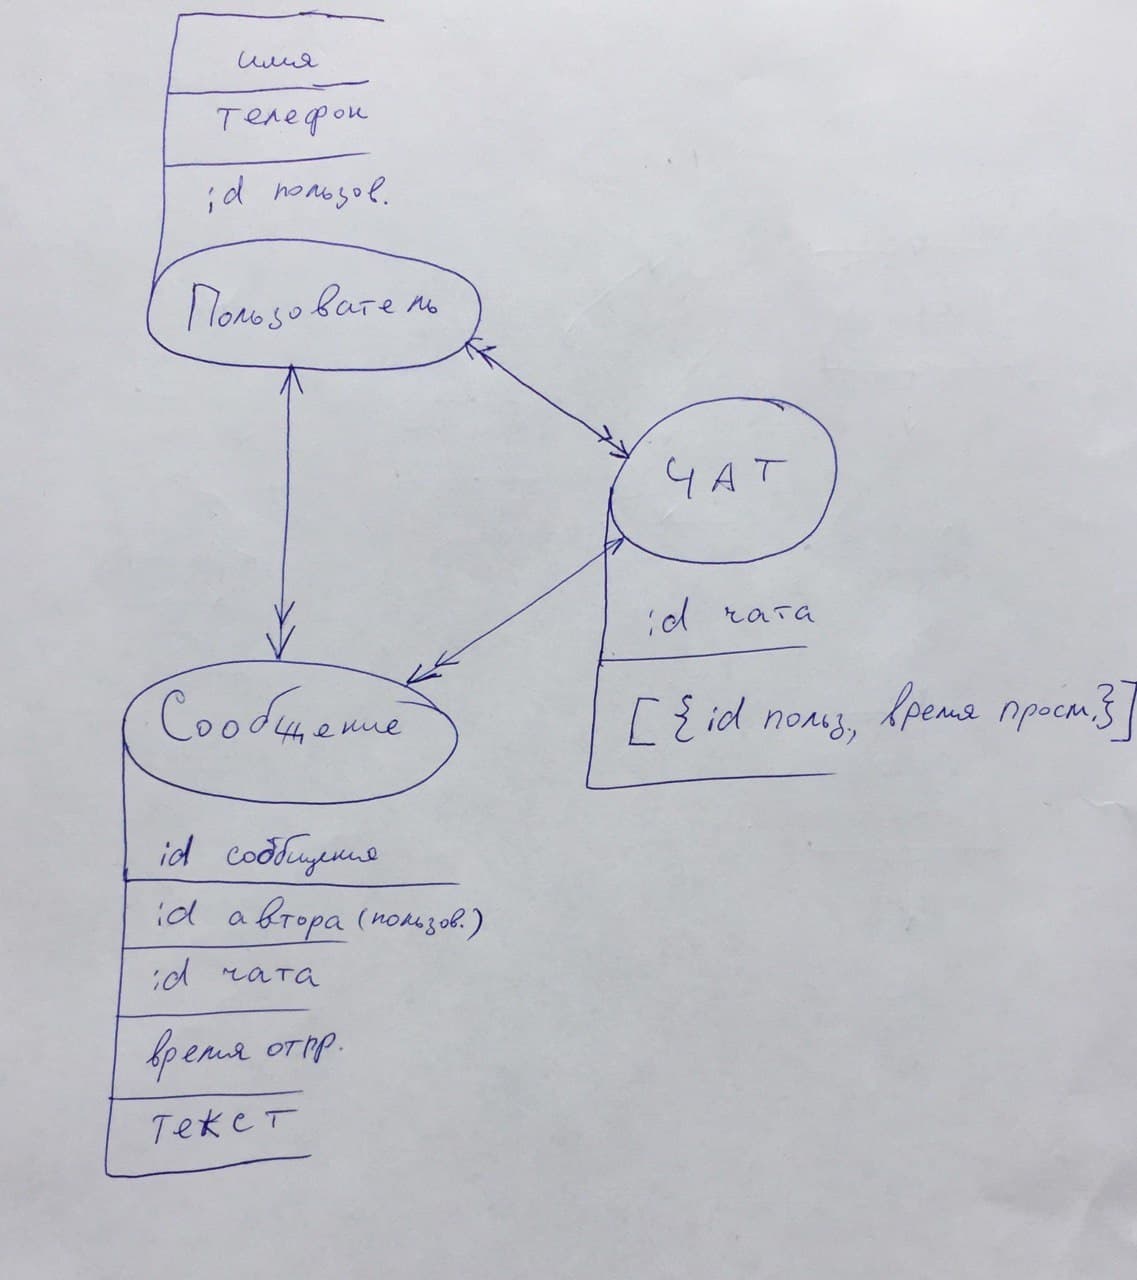 имя
телефон
id пользов.
Пользователь
ЧАТ
id чата
[{id польз., время просм.}]
Сообщение
id сообщения
id автора (пользов.)
id чата
время отпр.
текст